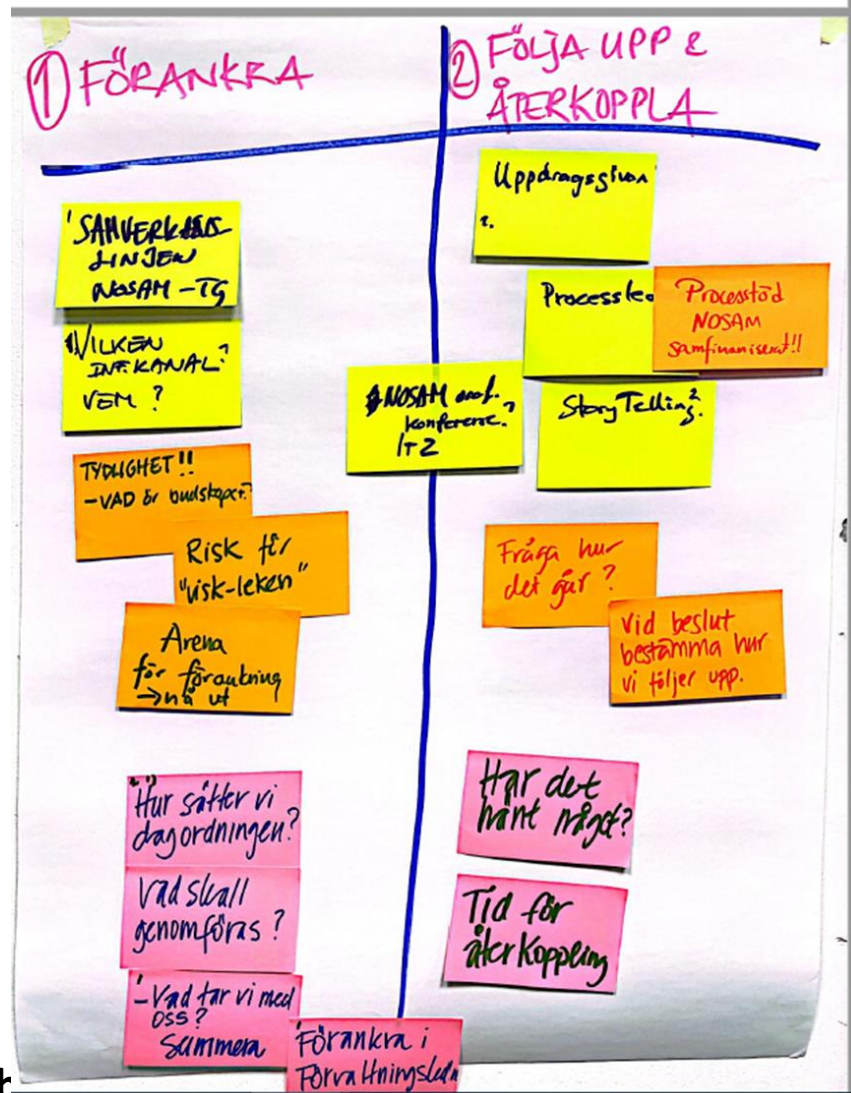 ① FÖRANKRA
SAMVERKANS
LINJEN
NOSAM - TG
VILKEN
INF.KANAL?
VEM ?
TYDLIGHET!!
- VAD är budskapet?
Risk för
"visk-leken"
Arena
för förankring
→ nå ut
Hur sätter vi
dagordningen?
Vad skall
genomföras ?
- Vad tar vi med
oss?
Summera
Förankra i
Förvaltningsledn
NOSAM
konferens.?
② FÖLJA UPP &
ÅTERKOPPLA
Uppdragsgivar
Processled
Processtöd
NOSAM
samfinansierat!!
StoryTelling?
Fråga hur
det går ?
Vid beslut
bestämma hur
vi följer upp.
Har det
hänt något?
Tid för
återkoppling